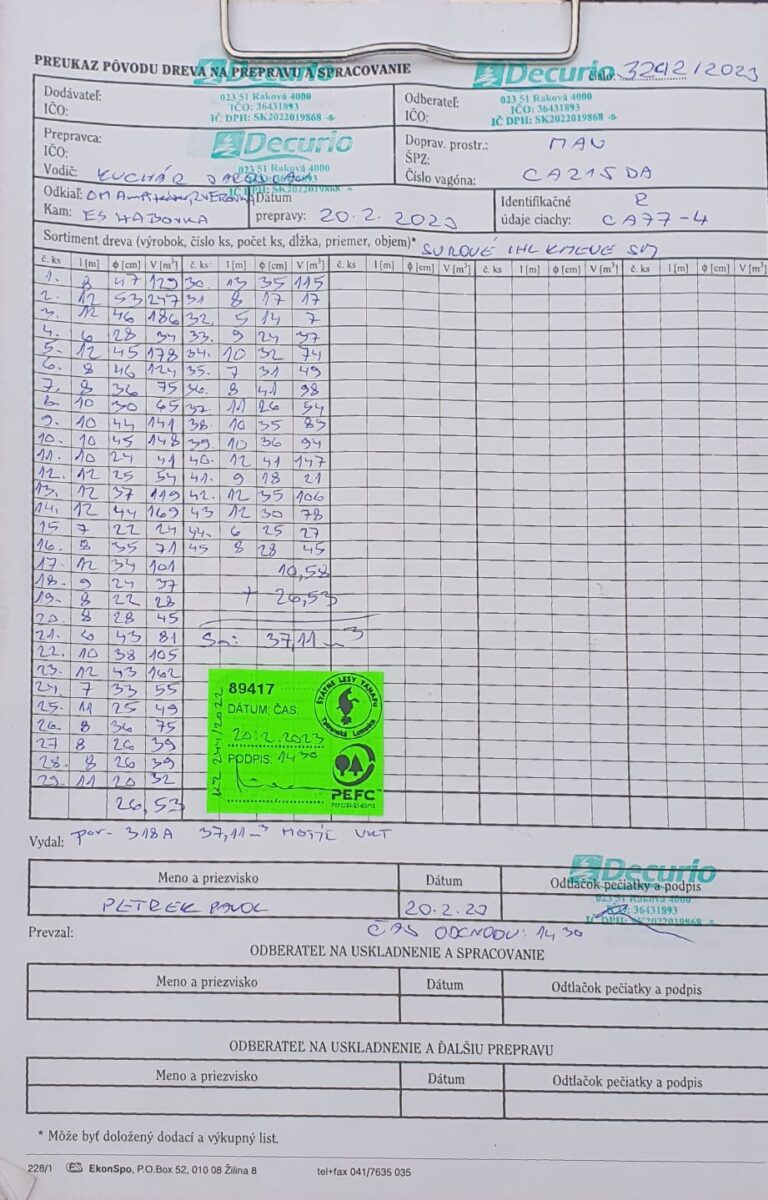 PREUKAZ PÔVODU DREVA NA PREPRAVU A SPRACOVANIE
Decurio
číslo: 3242/2023
Dodávateľ:
IČO:
023 51 Raková 4000
IČO: 36431893
IČ DPH: SK2022019868 -6-
Odberateľ:
IČO:
023 51 Raková 4000
IČO: 36431893
IČ DPH: SK2022019868 -6-
Prepravca:
IČO:
Decurio
023 51 Raková 4000
Vodič: KUCHÁR
Doprav. prostr.: MAN
ŠPZ:
Číslo vagóna: CA215DA
Odkiaľ: OM
Kam: ES HABOVKA
Dátum
prepravy: 20.2.2023
Identifikačné R
údaje ciachy: CA77-4
Sortiment dreva (výrobok, číslo ks, počet ks, dĺžka, priemer, objem)* SUROVÉ IHL KMENE SM
č. ks l [m] ϕ [cm] V [m³] č. ks l [m] ϕ [cm] V [m³] č. ks l [m] ϕ [cm] V [m³] č. ks l [m] ϕ [cm] V [m³] č. ks l [m] ϕ [cm] V [m³]
1. 8 47 129 30. 13 35 115
2. 12 53 247 31 8 17 17
3. 12 46 186 32. 5 14 7
4. 6 28 34 33. 9 24 37
5. 12 45 178 34. 10 32 74
6. 8 46 124 35. 7 31 49
7. 8 36 75 36. 8 41 98
8. 10 30 65 37 11 26 54
9. 10 44 141 38. 10 35 89
10. 10 45 148 39. 10 36 94
11. 10 24 41 40. 12 41 147
12. 12 25 54 41. 9 18 21
13. 12 37 119 42. 12 35 106
14. 12 44 169 43 12 30 78
15 7 22 24 44. 6 25 27
16. 8 35 71 45 8 28 45
17. 12 34 101 10,58
18. 9 24 37
19. 8 22 28 + 26,53
20. 8 28 45
21. 6 43 81 Sa: 37,11 m3
22. 10 38 105
23. 12 43 162
24. 7 33 55
25. 11 25 49
26. 8 36 75
27 8 26 39
28. 8 26 39
29. 11 20 32
26,53
89417
DÁTUM, ČAS:
20.2.2023
PODPIS: 14 30
ŠTÁTNE LESY TANAPu
Tatranská Lomnica
PEFC™
Vydal: por. 318A 37,11 m3
Meno a priezvisko Dátum Odtlačok pečiatky a podpis
PETREK PAVOL 20.2.23
Decurio
023 51 Raková 4000
36431893
IČ DPH: SK2022019868 -6-
Prevzal: ČAS ODCHODU: 14 30
ODBERATEĽ NA USKLADNENIE A SPRACOVANIE
Meno a priezvisko Dátum Odtlačok pečiatky a podpis
ODBERATEĽ NA USKLADNENIE A ĎALŠIU PREPRAVU
Meno a priezvisko Dátum Odtlačok pečiatky a podpis
* Môže byť doložený dodací a výkupný list.
228/1 ES EkonSpo, P.O.Box 52, 010 08 Žilina 8 tel+fax 041/7635 035